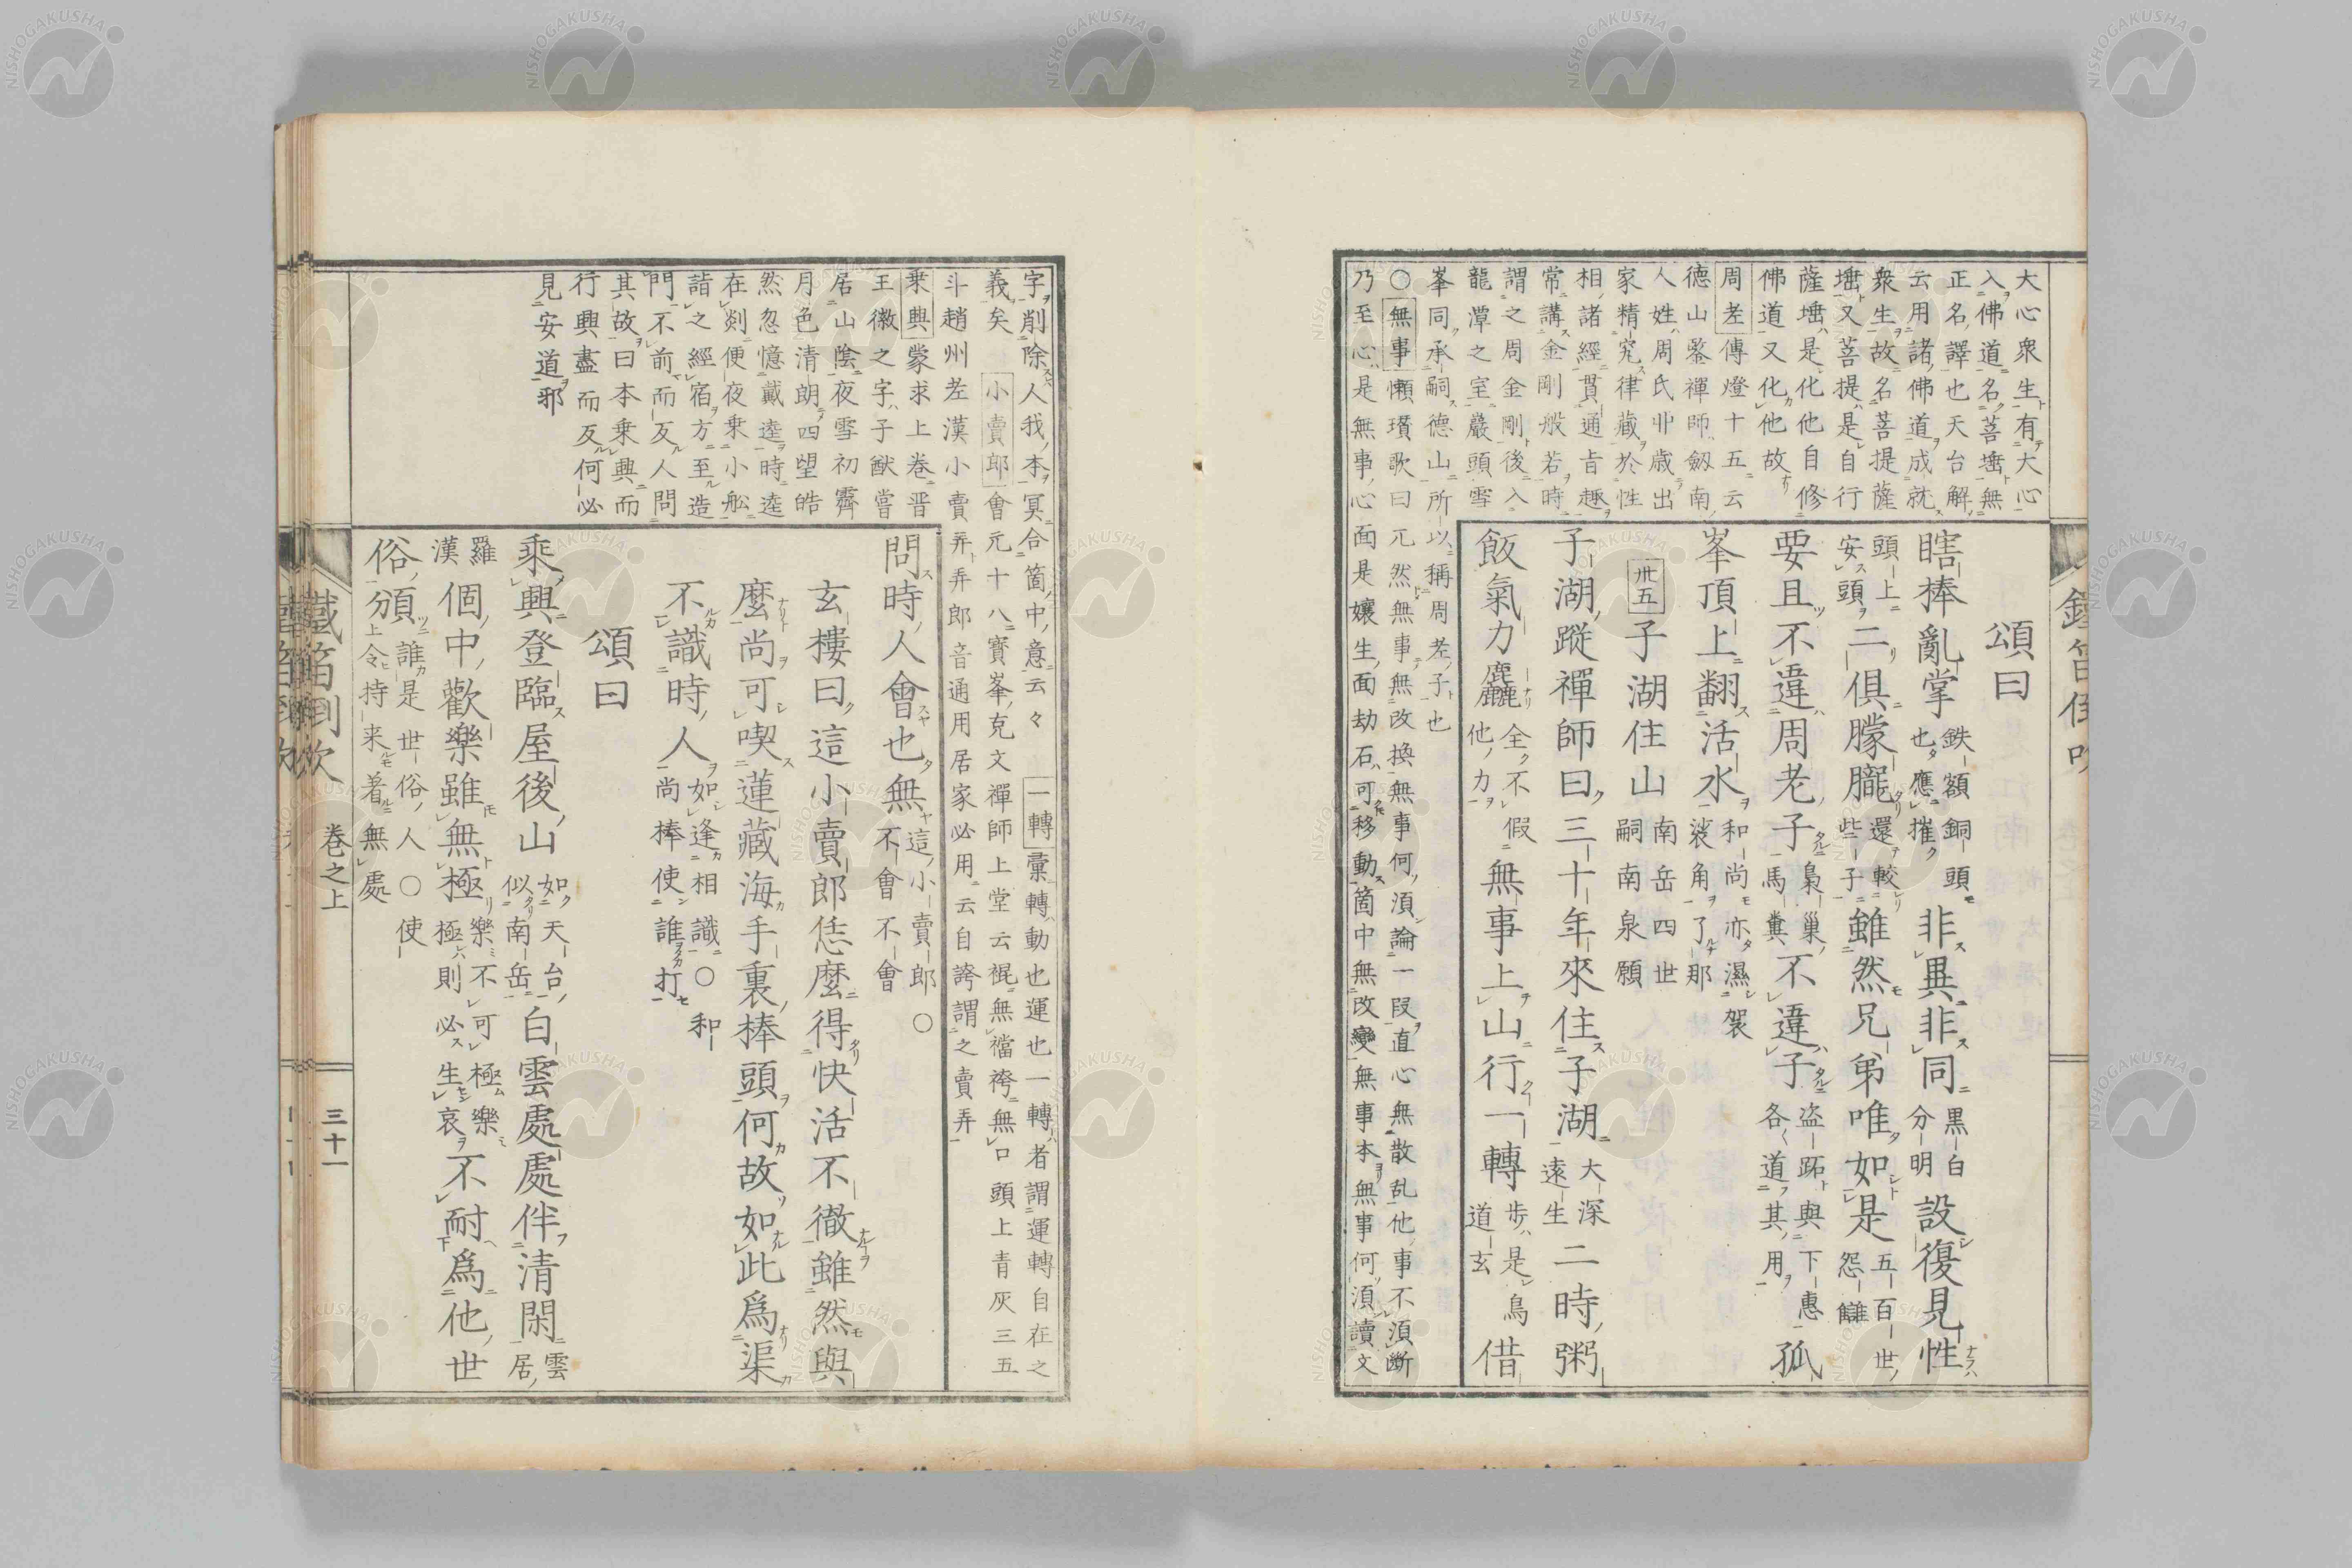 大心衆生有大心
入佛道名菩㙮無
正名譯也天台解
云用諸佛道成就
衆生故名菩提薩
㙮又菩提是自行
薩㙮是化他自修
佛道又化他故
周老傳燈十五云
德山鑒禪師劔南
人姓周氏丱歳出
家精究律藏於性
相諸經貫通旨趣
常講金剛般若時
謂之周金剛後入
龍潭之室巖頭雪
峯同承嗣德山所以稱周老子也
○無事懶瓚歌曰兀然無事無改換無事何須論一段直心無散乱他事不須斷
乃至心是無事心面是孃生面劫石可移動箇中無改變無事本無事何須讀文
頌曰
瞎棒亂掌鉄額銅頭也應摧非異非同黒白分明設復見性
頭上安頭二俱朦朧還較些子雖然兄弟唯如是五百世怨讎
要且不違周老子梟巢馬糞不違子盗跖與下惠各道其用孤
峯頂上翻活水和尚亦濕袈裟角了那
卅五子湖住山南岳四世嗣南泉願
子湖蹤禪師曰三十年來住子湖大深遠生二時粥
飯氣力麤全不假他力無事上山行一轉歩是鳥道玄借
字削除人我本冥合箇中意云々 一轉彙轉動也運也一轉者謂運轉自在之
義矣 小賣郎會元十八寶峯克文禪師上堂云裩無襠袴無口頭上青灰三五
斗趙州老漢小賣弄弄郎音通用居家必用云自誇謂之賣弄
乗興蒙求上卷晋
王徽之字子猷嘗
居山陰夜雪初霽
月色清朗四望皓
然忽憶戴逵時逵
在剡便夜乗小舩
詣之經宿方至造
門不前而反人問
其故曰本乗興而
行興盡而反何必
見安道邪
問時人會也無這小賣郎不會不會○
玄樓曰這小賣郎恁麼得快活不徹雖然與
麼尚可喫蓮藏海手裏棒頭何故如此爲渠
不識時人如逢相識○和尚棒使誰打
頌曰
乘興登臨屋後山如天台似南岳白雲處處伴清閑雲居
羅漢個中歡樂雖無極樂不可極樂極則必生哀不耐爲他世
俗頒誰是世俗人○使上令持来着無處
鐵笛倒吹
卷之上
三十一